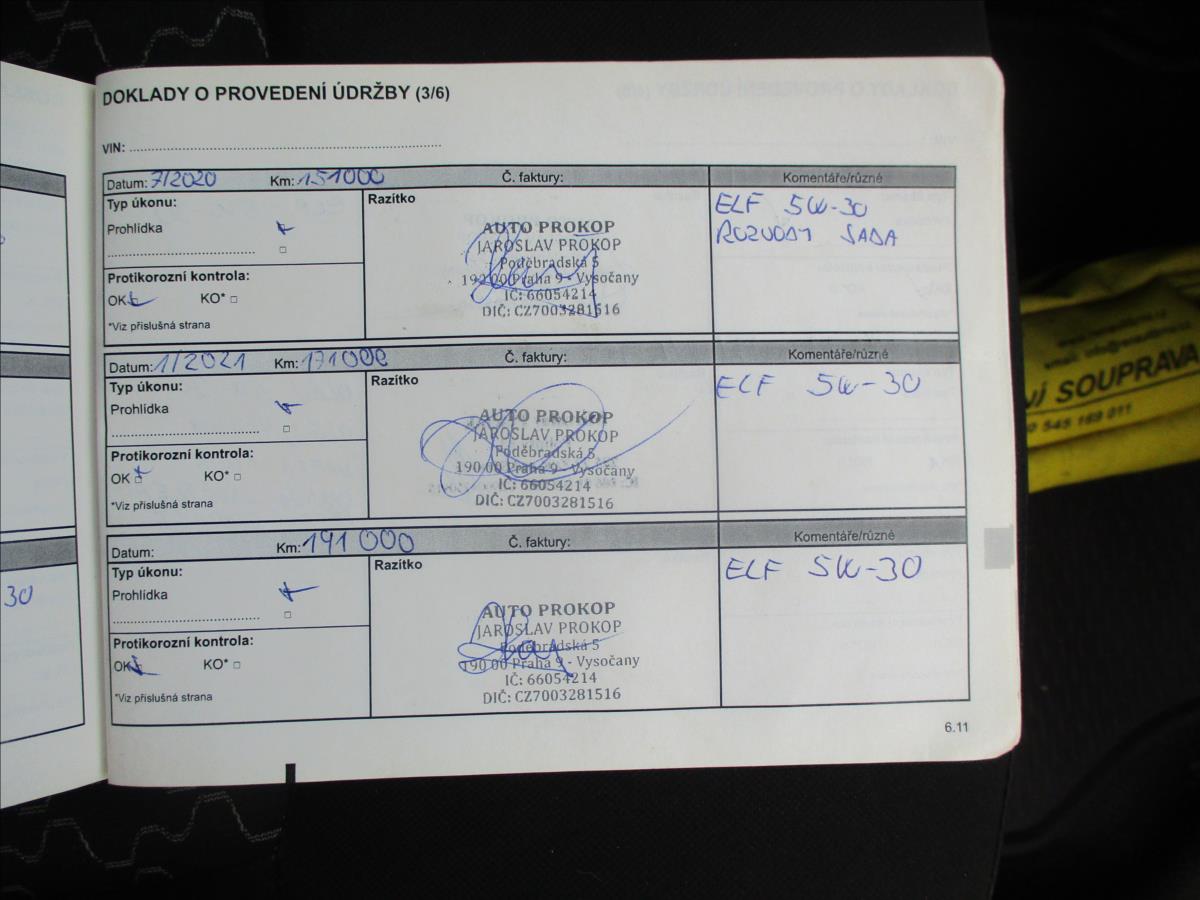 DOKLADY O PROVEDENÍ ÚDRŽBY (3/6)
VIN:
Datum: 7/2020 Km: 151000 Č. faktury: Komentáře/různé
Typ úkonu: Razítko ELF 5W-30
Prohlídka ROZVODY SADA
AUTO PROKOP
JAROSLAV PROKOP
Poděbradská 5
190 00 Praha 9 - Vysočany
IČ: 66054214
DIČ: CZ7003281516
Protikorozní kontrola:
OK KO*
*Viz příslušná strana
Datum: 1/2021 Km: 171000 Č. faktury: Komentáře/různé
Typ úkonu: Razítko ELF 5W-30
Prohlídka
AUTO PROKOP
JAROSLAV PROKOP
Poděbradská 5
190 00 Praha 9 - Vysočany
IČ: 66054214
DIČ: CZ7003281516
Protikorozní kontrola:
OK KO*
*Viz příslušná strana
Datum: Km: 191 000 Č. faktury: Komentáře/různé
Typ úkonu: Razítko ELF 5W-30
Prohlídka
AUTO PROKOP
JAROSLAV PROKOP
Poděbradská 5
190 00 Praha 9 - Vysočany
IČ: 66054214
DIČ: CZ7003281516
Protikorozní kontrola:
OK KO*
*Viz příslušná strana
6.11
30
NÍ SOUPRAVA
545 169 011